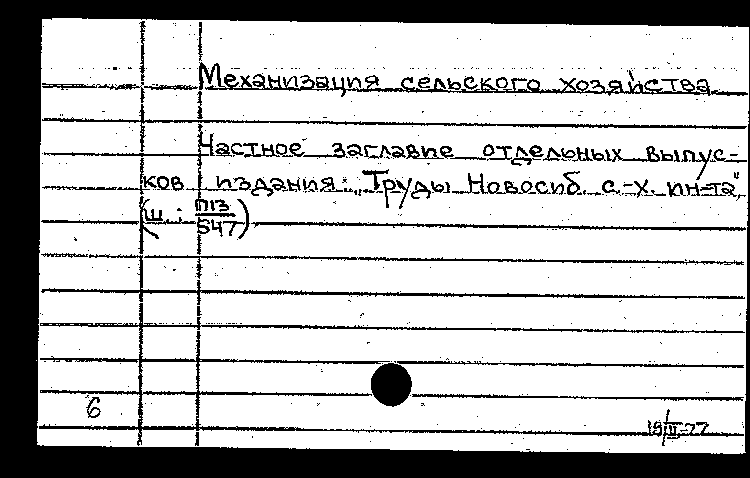 Механизация сельского хозяйства
Частное заглавие отдельных выпус-
ков издания: „Труды Новосиб. с.-х. ин-та"
(ш.: П13/547)
6
19/III-77